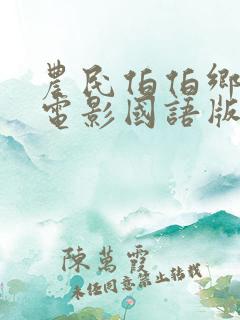 農民伯伯鄉
電影國語版
陳萬霞
未经同意禁止转载